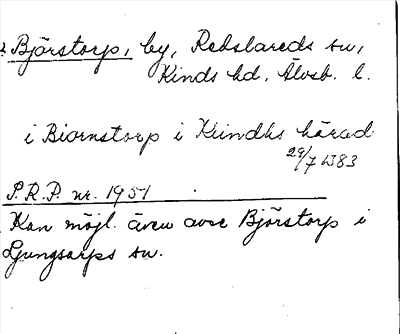 Björstorp, by, Redslareds sn,
Kinds hd. Älvsb. l.
i Biornstorp i Kiindhs härad
29/7 1483
S.R.P. nr. 1951
Kan möjl. även avse Björstorp i
Ljungsarps sn.